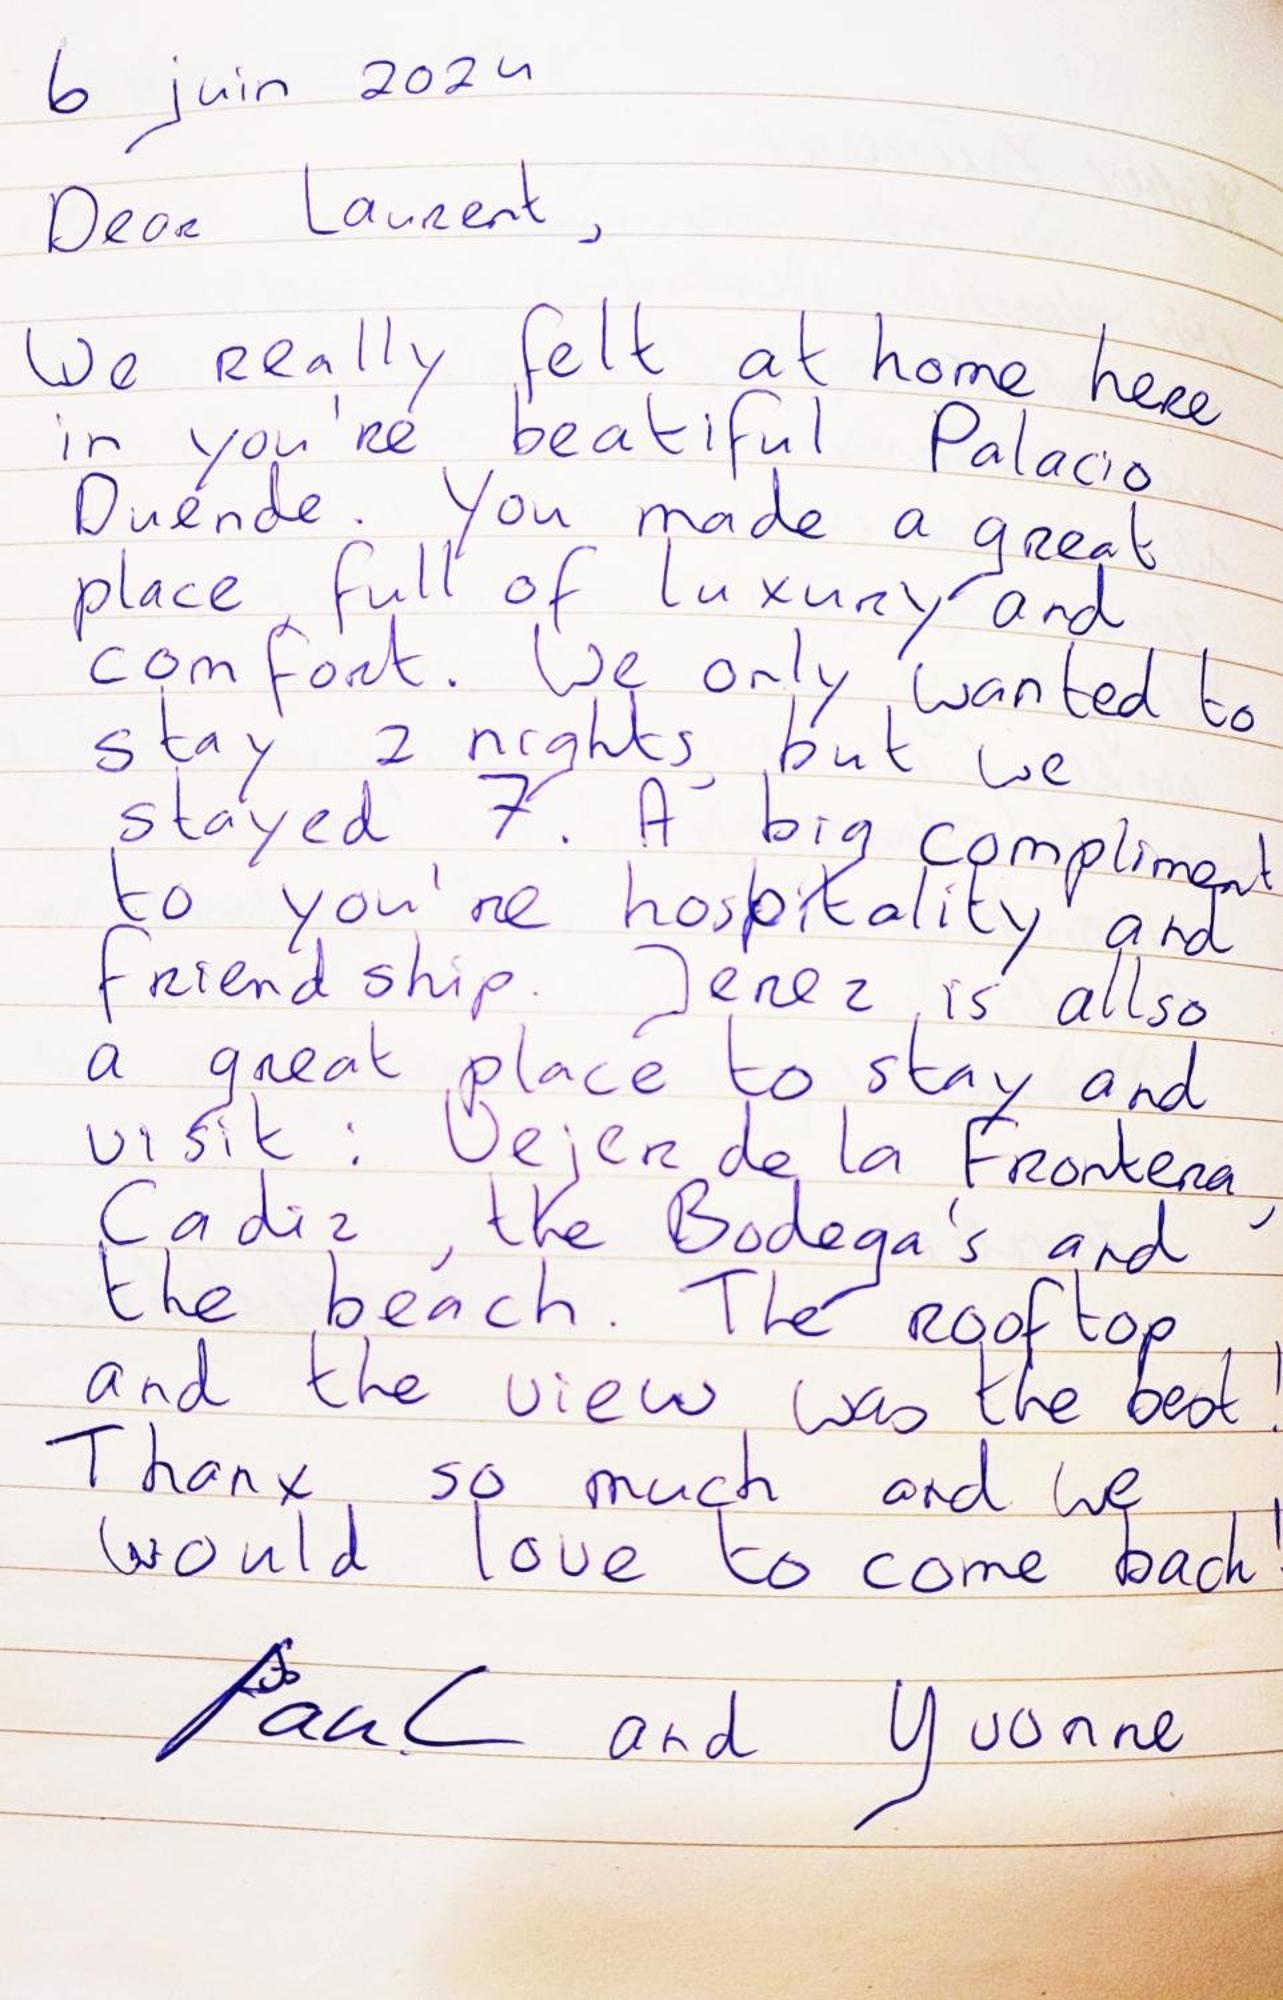 6 juin 2024
Dear Laurent,
We really felt at home here
in you're beatiful Palacio
Duende. You made a great
place, full of luxury and
comfort. We only wanted to
stay 2 nights, but we
stayed 7. A big compliment
to you're hospitality and
friendship. Jerez is allso
a great place to stay and
visit: Vejer de la Frontera,
Cadiz, the Bodega's and
the beach. The rooftop
and the view was the best!
Thanx so much and we
would love to come back!
Paul and Yvonne